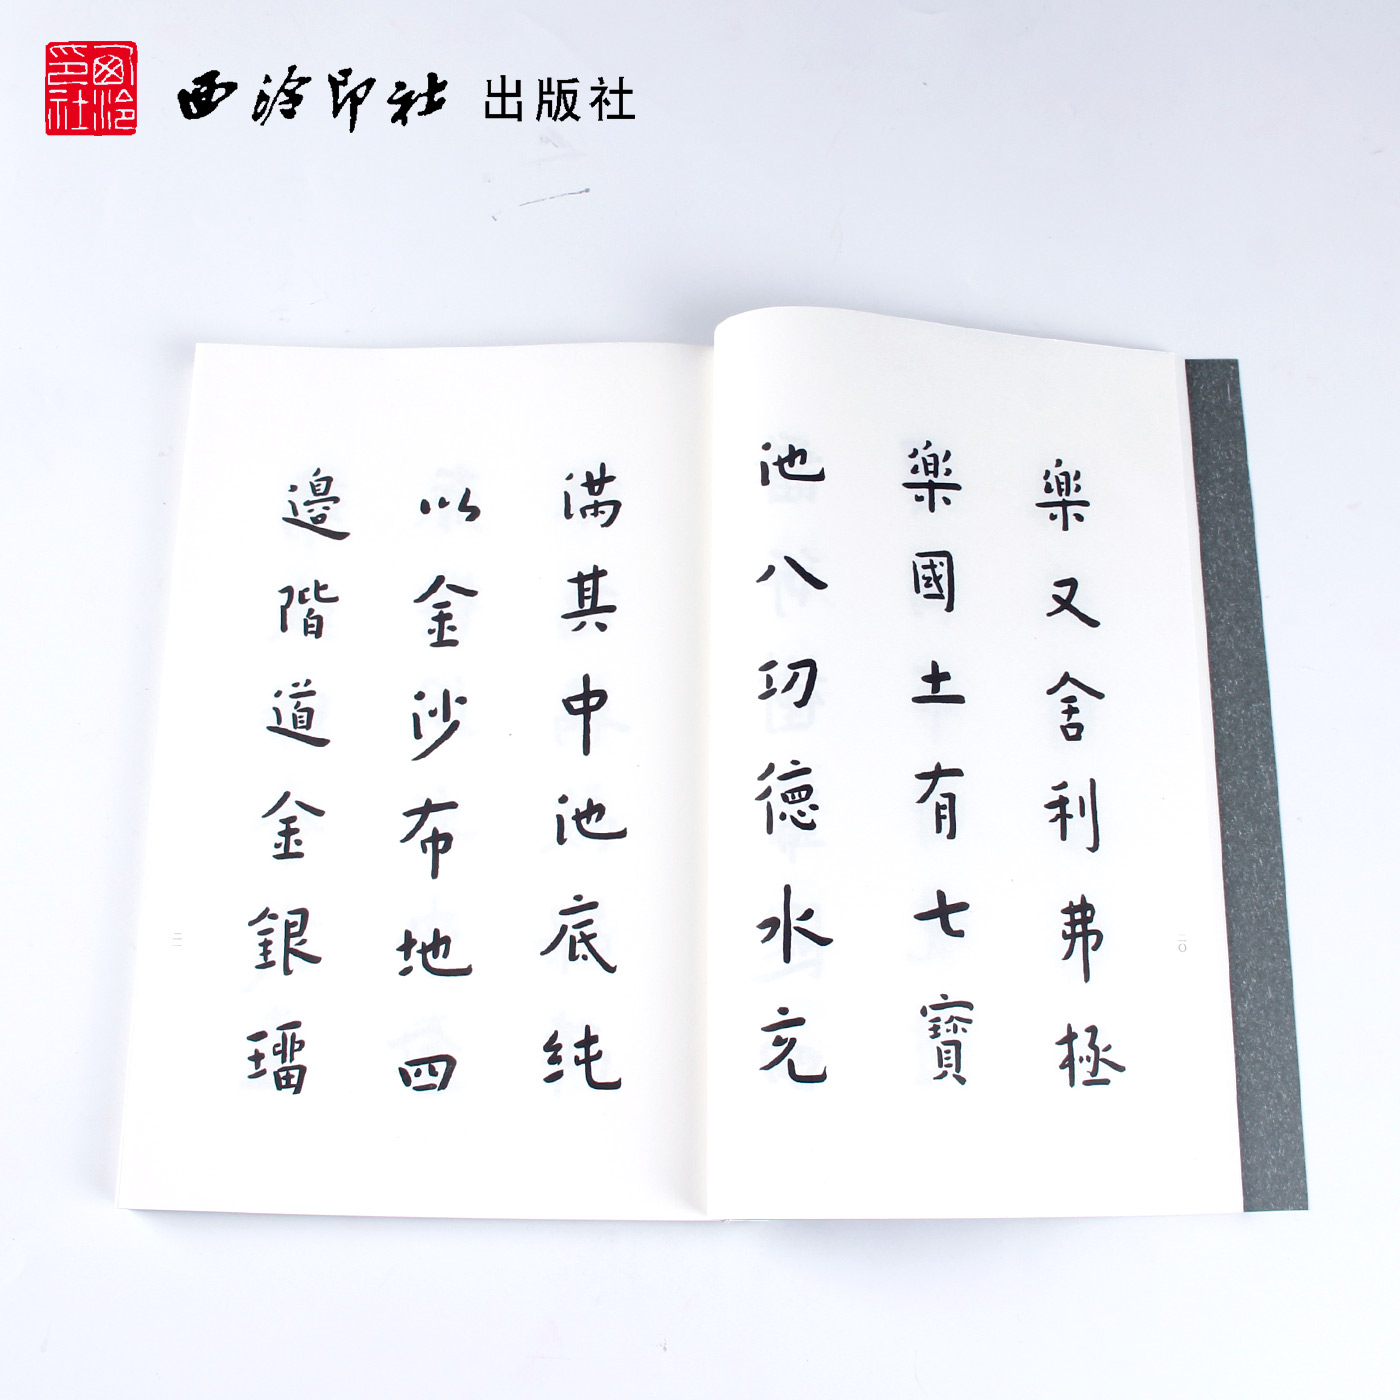 西泠印社
西泠印社 出版社
樂又舍利弗極
樂國土有七寶
池八功德水充
二〇
滿其中池底純
以金沙布地四
邊階道金銀瑠
二一